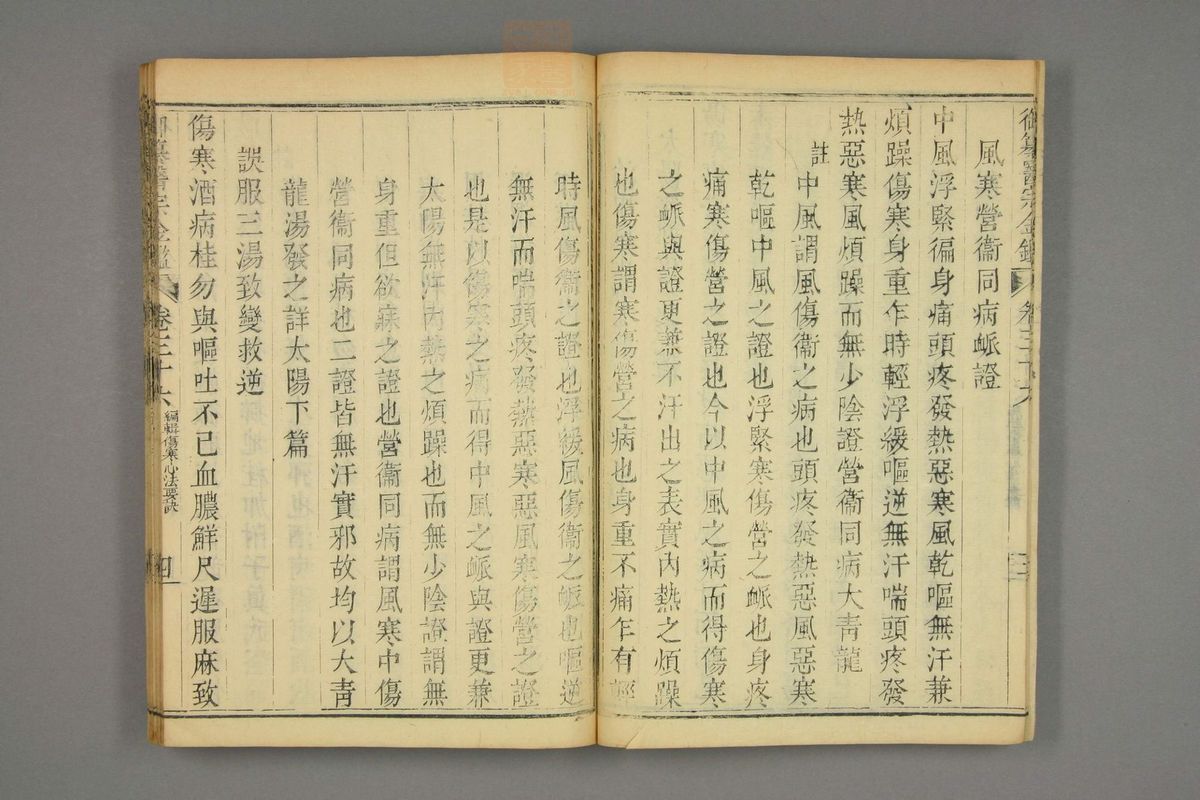 御纂醫宗金鑑 卷三十六
風寒營衞同病衇證
中風浮緊徧身痛頭疼發熱惡寒風乾嘔無汗兼
煩躁傷寒身重乍時輕浮緩嘔逆無汗喘頭疼發
熱惡寒風煩躁而無少陰證營衞同病大青龍
註中風謂風傷衞之病也頭疼發熱惡風惡寒
乾嘔中風之證也浮緊寒傷營之衇也身疼
痛寒傷營之證也今以中風之病而得傷寒
之衇與證更兼不汗出之表實內熱之煩躁
也傷寒謂寒傷營之病也身重不痛乍有輕
時風傷衞之證也浮緩風傷衞之衇也嘔逆
無汗而喘頭疼發熱惡寒惡風寒傷營之證
也是以傷寒之病而得中風之衇與證更兼
太陽無汗內熱之煩躁也而無少陰證謂無
身重但欲寐之證也營衞同病謂風寒中傷
營衞同病也二證皆無汗實邪故均以大青
龍湯發之詳太陽下篇
誤服三湯致變救逆
傷寒酒病桂勿與嘔吐不已血膿鮮尺遲服麻致
卷三十六 編輯傷寒心法要訣 四